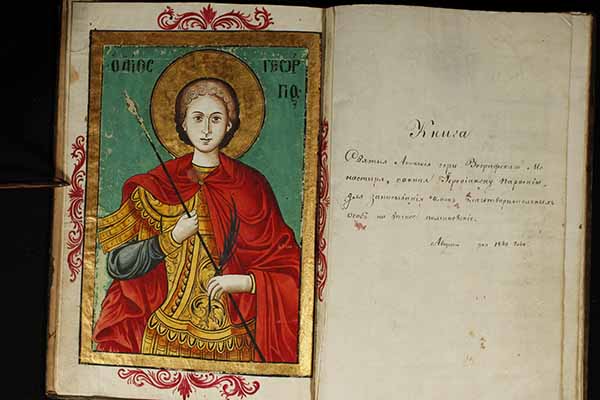 Ο ΑΓΙΟϹ ΓΕΩΡ
ΓΙΟϹ
Книга
Святыя Аѳонскія горы Зографскаго Мо-
настыря, данная
для записыванія имен благотворительных
особ на вечное поминовѣніе.
дня года